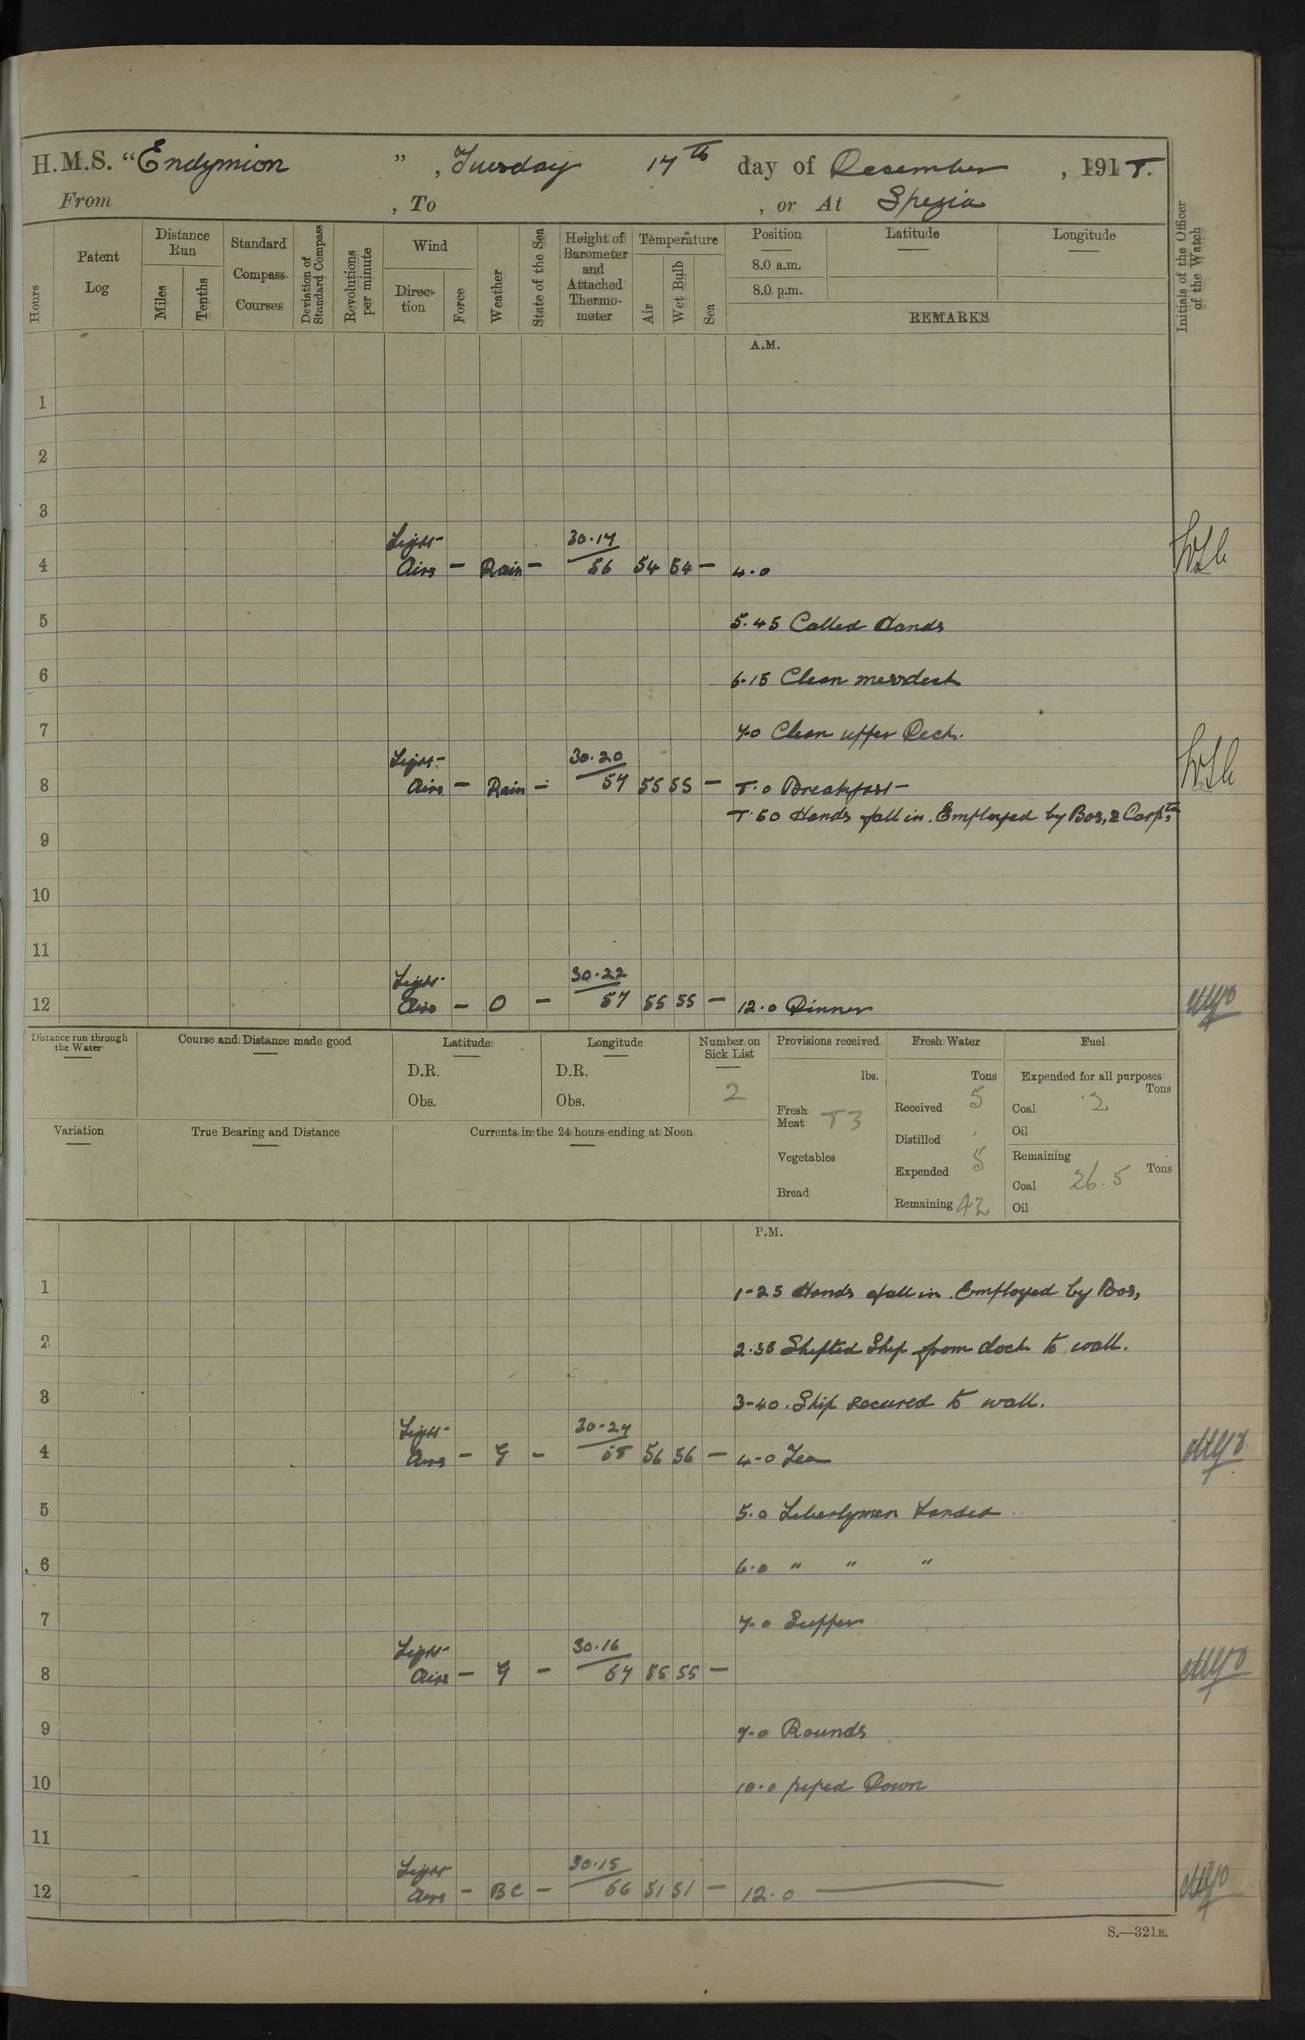 H.M.S. "Endymion", Tuesday 17th day of December, 1918.
From , To , or At Spezia
Hours
Patent Log
Distance Run
Miles
Tenths
Standard Compass Courses
Deviation of Standard Compass
Revolutions per minute
Wind
Direction
Force
Weather
State of the Sea
Height of Barometer and Attached Thermometer
Temperature
Air
Wet Bulb
Sea
Position
8.0 a.m.
8.0 p.m.
Latitude
Longitude
REMARKS
Initials of the Officer of the Watch
A.M.
1
2
3
Light 30.17
4 Airs — Rain — 56 54 54 — 4.0
5 5.45 Called Hands
6 6.15 Clean messdeck
7 7.0 Clean upper Deck.
Light 30.20
8 Airs — Rain — 57 55 55 — 8.0 Breakfast
8.50 Hands fall in. Employed by Bos, & Carptrs
9
10
11
Light 30.22
12 Airs — O — 57 55 55 — 12.0 Dinner
Distance run through the Water
Course and Distance made good
Latitude
D.R.
Obs.
Longitude
D.R.
Obs.
Number on Sick List
2
Provisions received
lbs.
Fresh Meat 83
Vegetables
Bread
Fresh Water
Tons
Received 5
Distilled
Expended 5
Remaining 42
Fuel
Expended for all purposes
Tons
Coal 2
Oil
Remaining
Tons
Coal 26.5
Oil
Variation
True Bearing and Distance
Currents in the 24 hours ending at Noon
P.M.
1 1-25 Hands fall in. Employed by Bos,
2 2.35 Shifted Ship from dock to wall.
3 3-40. Ship secured to wall.
Light 30-27
4 Airs — G — 58 56 56 — 4-0 Tea
5 5.0 Libertymen Landed
6 6.0 " " "
7 7.0 Supper
Light 30.16
8 Airs — G — 57 55 55 —
9 9.0 Rounds
10 10.0 piped Down
11
Light 30.15
12 Airs — BC — 56 51 51 — 12.0
S.—321B.